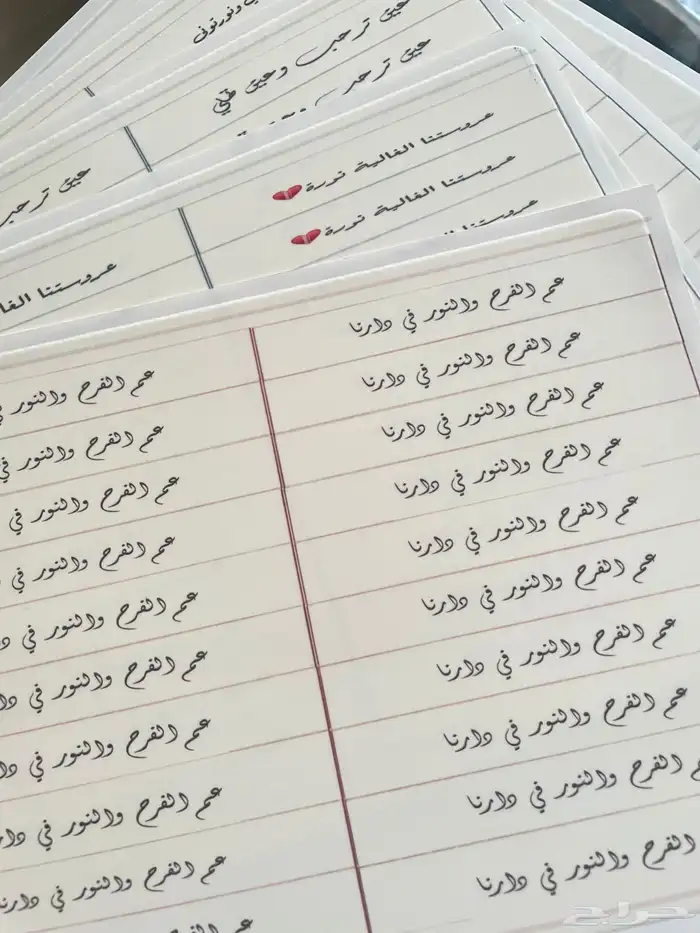 ونورتوني
عيني ترحب وعيني
عيني ترحب
عيني ترحب
عروستنا الغالية نورة
عروستنا الغالية نورة
عروستنا
عروستنا
عم الفرح والنور في دارنا
عم الفرح والنور في دارنا
عم الفرح والنور في دارنا
عم الفرح والنور في دارنا
عم الفرح والنور في دارنا
عم الفرح والنور في دارنا
عم الفرح والنور في دارنا
عم الفرح والنور في دارنا
الفرح والنور في دارنا
الفرح والنور في دارنا
عم الفرح والنور
عم الفرح والنور في
عم الفرح والنور في
عم الفرح والنور في
عم الفرح والنور في
عم الفرح والنور في
عم الفرح والنور في
عم الفرح والنور في
عم الفرح والنور في دارنا
عم الفرح
حراج